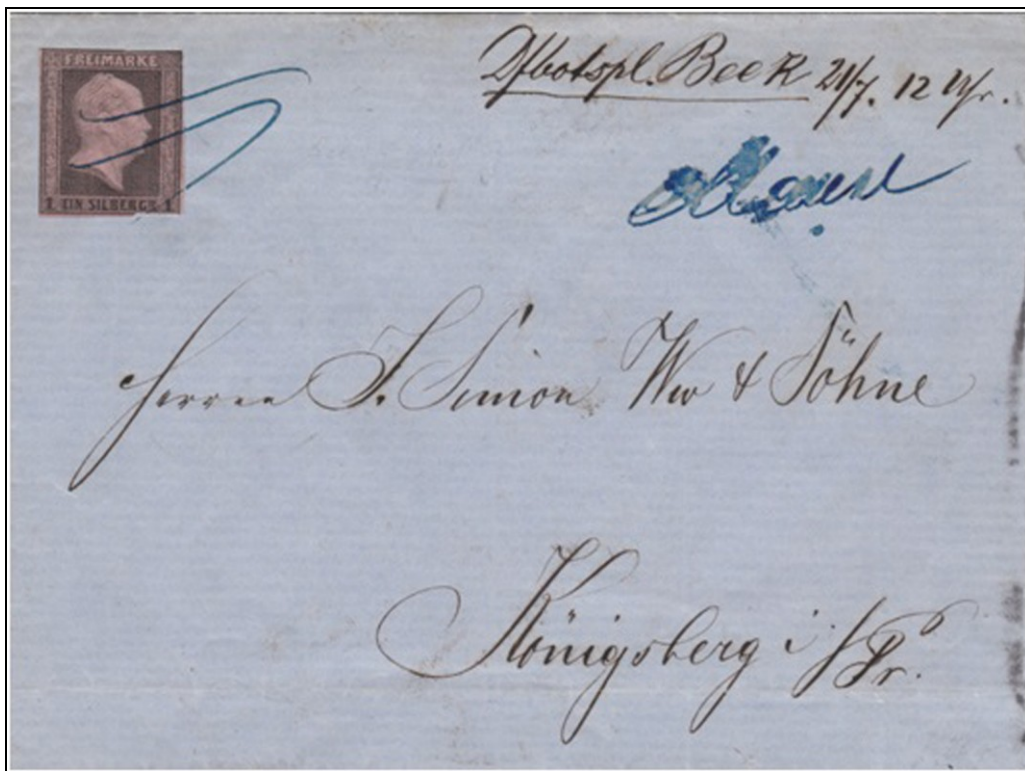 FREIMARKE
1 EIN SILBERGR. 1
Dfbotspl. Beek 21/7. 12 Uhr.
Herren J. Simon Ww & Söhne
Königsberg i/Pr.